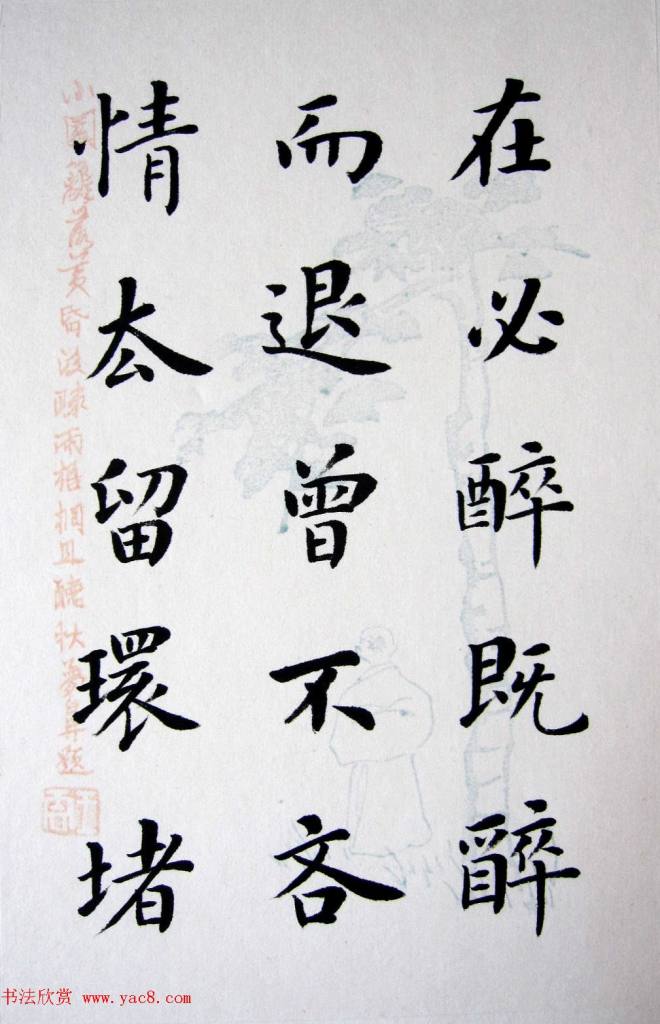 在必醉既醉
而退曾不吝
情去留環堵
小園籬落黃昏後疎雨梧桐且聽秋
书法欣赏 www.yac8.com